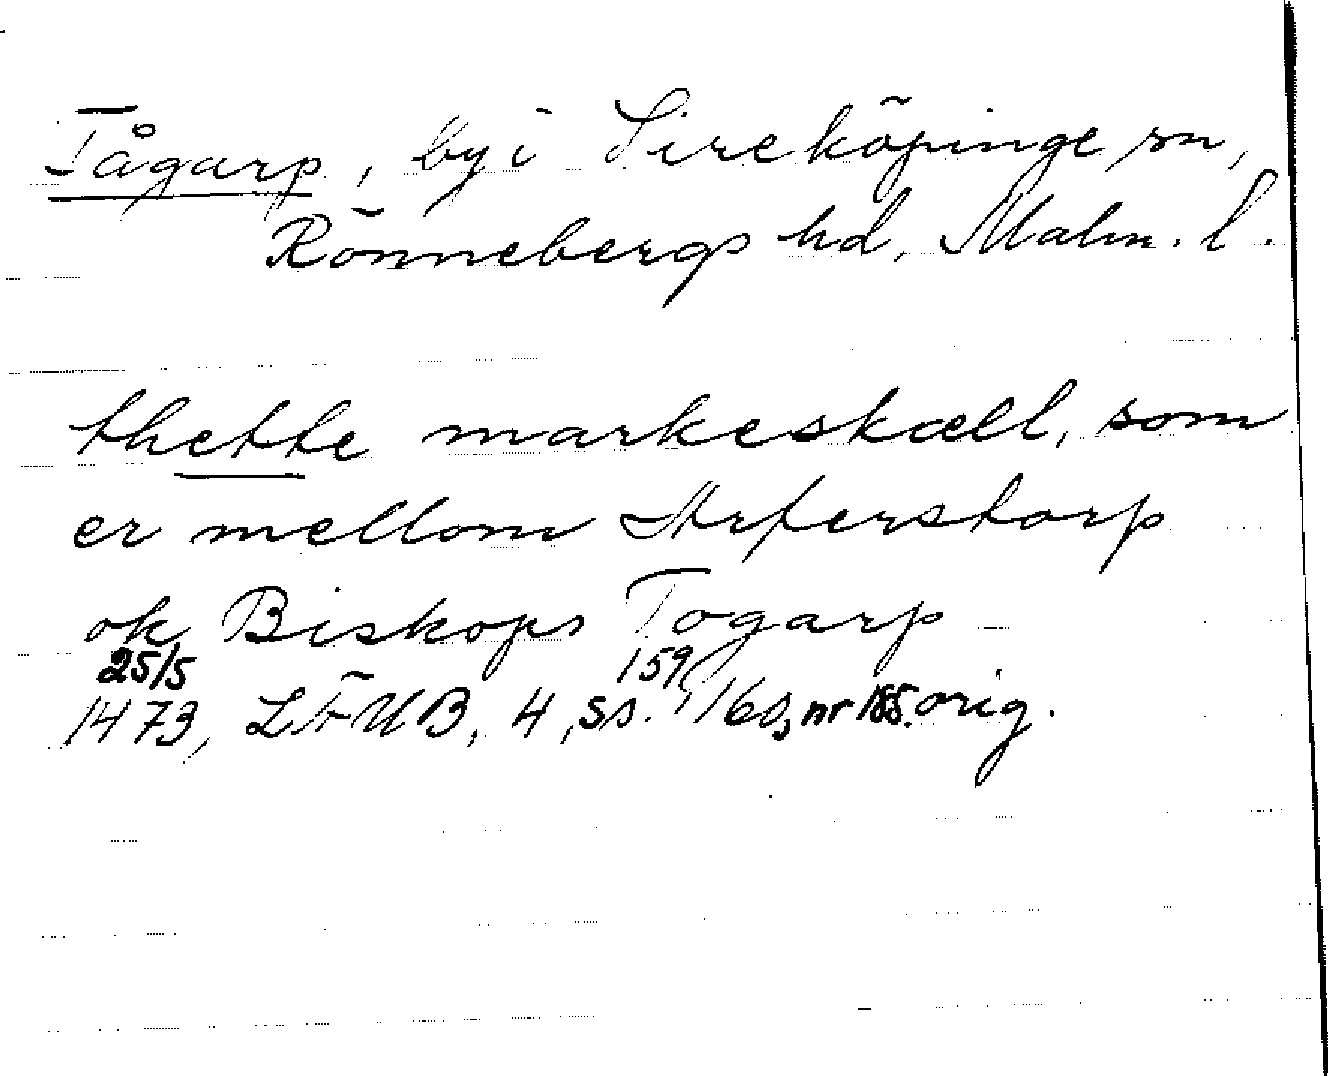 Tågarp, by i Sireköpinge sn,
Rönnebergs hd, Malm. l.
thette markeskæll, som
er mellom Arferstorp
ok Biskops Togarp
25/5 159
1473, LÄUB, 4, ss. 160, nr 185. orig.